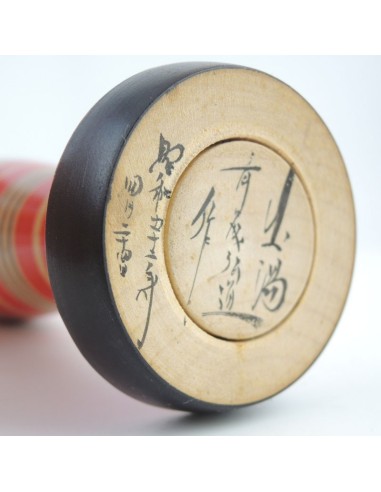 土湯
斉藤弘道
作
昭和五十 年
四月